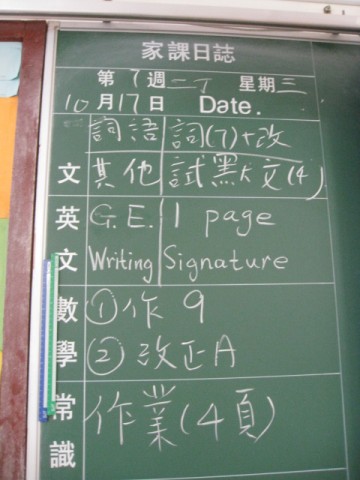 家課日誌
第7週一丁 星期三
10月17日 Date.
詞語 詞(7)+改
文 其他 試黑K文(4)
英 G.E. 1 page
文 Writing Signature
數 ①作9
學 ②改正A
常 作業(4頁)
識